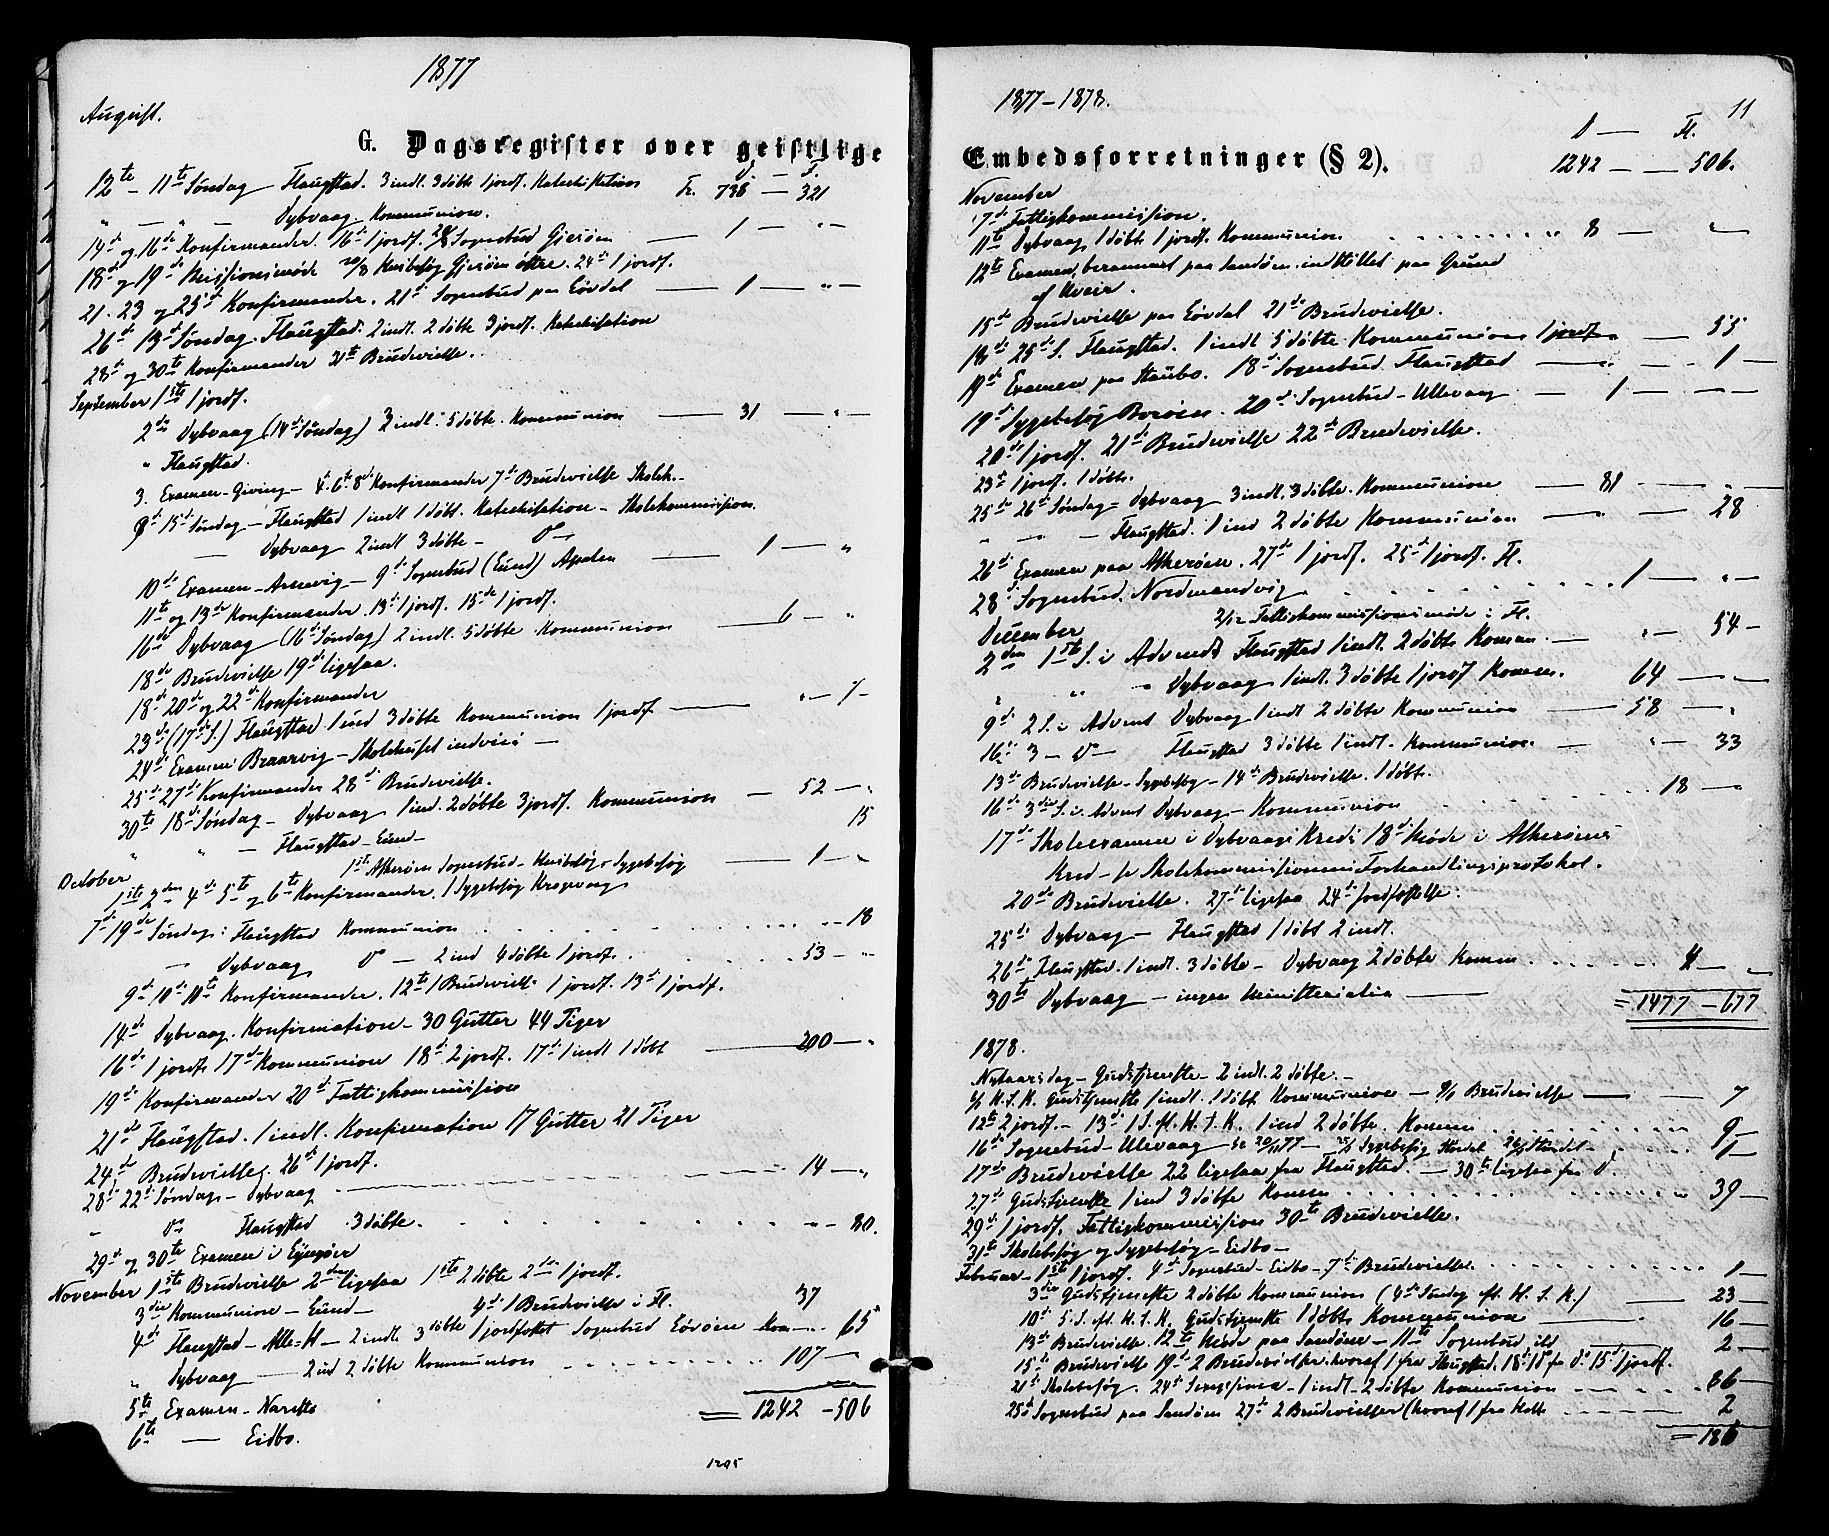 1877
August.
G. Dagsregister over geistlige
D. — F.
12te — 11te Søndag — Flaugstad. 3 indl. 3 døbte 1 jordf. Katechisation Tr. 738 — 321
" — " — Dybvaag — Kommunion.
14de og 16de Konfirmander. 16de 1 jordf. Sognebud Gjesøen — 1 — " —
18de og 19de Missionsmøde 20/8 Husbesøg Gjesøen østre. 24de 1 jordf.
21. 23 og 25de Konfirmander. 21de Sognebud paa Løvdal — 1 — " —
26de 13de Søndag. Flaugstad. 2 indl. 2 døbte 3 jordf. Katechisation
28de og 30te Konfirmander 21te Brudevielse.
September 1ste 1 jordf.
2den Dybvaag (14de Søndag) 3 indl. 5 døbte. Kommunion — 31 — " —
" Flaugstad.
3. Examen — Giving — 4. 6te 8de Konfirmander 7de Brudevielse Skolek.
9de 15de Søndag — Flaugstad 1 indl 1 døbt. Katechisation — Skolekommission.
— Dybvaag 2 indl 3 døbte — Do —
10de Examen — Arnevig — 9de Sognebud (Lund) — 1 — "
11te og 13de Konfirmander. 13de 1 jordf. 15de 1 jordf.
16de Dybvaag (16de Søndag) 2 indl. 5 døbte. Kommunion — 6 — "
18de Brudevielse 19de ligesaa.
18de 20de og 22de Konfirmander
23de (17de S.) Flaugstad 1 ind 3 døbte Kommunion 1 jordf
24de Examen Braarvig — Skolehuset indviet —
25de 27de Konfirmander 28de Brudevielse.
30te 18de Søndag — Dybvaag 1 ind. 2 døbte 3 jordf. Kommunion — 52 — "
" " — Flaugstad — Lund — 15
October 1ste Askerøen Sognebud — Husbesøg — Sygebesøg — 1 — "
1ste 2den 4de 5te og 6te Konfirmander. 1 Sygebesøg Krogvaag
7de 19de Søndag: Flaugstad Kommunion . . . " — 18
— Dybvaag Do — 2 ind 4 døbte 1 jordf. . . . 53 — "
9de 10de 10te Konfirmander. 12te 1 Brudevielse 1 jordf. 13de 1 jordf.
14de Dybvaag. Konfirmation — 30 Gutter 44 Piger
16de 1 jordf. 17de Kommunion 18de 2 jordf. 17de 1 indl 1 døbt — 200 — "
19de Konfirmander 20de Fattigkommission
21de Flaugstad. 1 indl. Konfirmation 17 Gutter 21 Piger
24de Brudevielse. 26de 1 jordf.
28de 22de Søndag. — Dybvaag — 14 — "
" Do Flaugstad 3 døbte. . . . " — 80.
29de og 30te Examen i Lyngøer
November 1ste Brudevielse 2den ligesaa 1ste 2 døbte 2den 1 jordf.
3die Kommunion — Lund — 4de 1 Brudevielse i Fl. 37
4de Flaugstad — Alle-H — 2 indl. 3 døbte 1 jordfæstet Sognebud — 65
" Dybvaag — 2 ind 2 døbte Kommunion . . . 107 —
5te Examen — Narestø = 1242 — 506
6te — Eidbo.
1205
1877 — 1878.
11
Embedsforretninger (§ 2).
D — Fl.
1242 — 506.
November
7de Fattigkommission.
11te Dybvaag 1 døbt. 1 jordf. Kommunion . . . 8 — " —
12te Examen, berammet paa Sandøen indstillet paa Grund
af Uveir.
15de Brudevielse paa Løvdal 21de Brudevielse.
18de 25de S. Flaugstad. 1 indl 5 døbte. Kommunion 1 jordf — 55
19de Examen paa Staubø. 18de Sognebud Flaugstad — 1 —
19de Sygebesøg Borøen. 20de Sognebud — Ullevaag — 1 —
20de 1 jordf. 21de Brudevielse 22de Brudevielse.
23de 1 jordf. 1 døbt.
25de 26de Søndag — Dybvaag 3 indl. 3 døbte. Kommunion — 81 — " —
" — " — Flaugstad. 1 ind 2 døbte Kommunion — 28
26de Examen paa Askerøen. 27de 1 jordf. 25de 1 jordf. Fl.
28de Sognebud, Nordmandvig . . . 1 — " —
December 2/12 Fattigkommissionsmøde i Fl.
2den 1ste S. i Advendt Flaugstad 1 indl. 2 døbte Kommun. — " — 54 —
" " — Dybvaag 1 indl. 3 døbte 1 jordf Kommun. 64 —
9de 2 S. i Advent Dybvaag 1 indl 2 døbte Kommunion — 58 — "
16de 3 — Do — Flaugstad 3 døbte 1 indl. Kommunion. — " — 33
13de Brudevielse — Sygebesøg — 14de Brudevielse. 1 døbt.
16de 3die S. i. Advent Dybvaag — Kommunion . . . 18 — "
17de Skoleexamen i Dybvaags Kreds 18de Møde i Askerøens
Kred — se Skolekommissionens Forhandlingsprotokol.
20de Brudevielse. 27de ligesaa 24de jordfæstelse.
25de Dybvaag — Flaugstad 1 døbt 2 indl.
26de Flaugstad. 1 indl. 3 døbte — Dybvaag 2 døbte Komm . . . 4 —
30te Dybvaag — ingen Ministerialia — = 1477 — 677
1878.
Nytaarsdag — Gudstjeneste — 2 indl. 2 døbte. —
6/1 H. 3. K. Gudstjeneste 1 indl. 1 døbt Kommunion — 9/1 Brudevielse — 7
12te 2 jordf. — 13de 1 S. ef. H. 3. K. 1 ind 2 døbte. Kommun . . . 9 —
16de Sognebud — Ullevaag — Sygebesøg . . . 1 —
17de Brudevielse 22 ligesaa fra Flaugstad. — 30te ligesaa fra Do.
27de Gudstjeneste 1 ind 3 døbte Komm . . . 39 —
29de 1 jordf. Fattigkommission 30te Brudevielse.
31te Skolebesøg og Sygebesøg — Eidbo —
Februar — 1ste 1 jordf. 4de Sognebud — Eidbo — 7de Brudevielse. . . . 1 —
3die Gudstjeneste 2 døbte Kommunion (4de Søndag eft. H. 3. K.) — 23 —
10de 5. S. eft. H. 3. K. Gudstjeneste 1 døbt Kommunion — 16 —
13de Brudevielse. 12te Møde paa Sandøen — 11te Sognebud — 2 —
15de Brudevielse 19de 2 Brudevielser hvoraf 1 fra Flaugstad. 18de 1 Do fra Do 15de 1 jordf.
21de Skolebesøg. 24de — 1 indl — 2 døbte Kommunion — 86 —
25de Sognebud paa Sandøen 27de 2 Brudevielser (hvoraf 1 fra Holt . . . 2
= 186